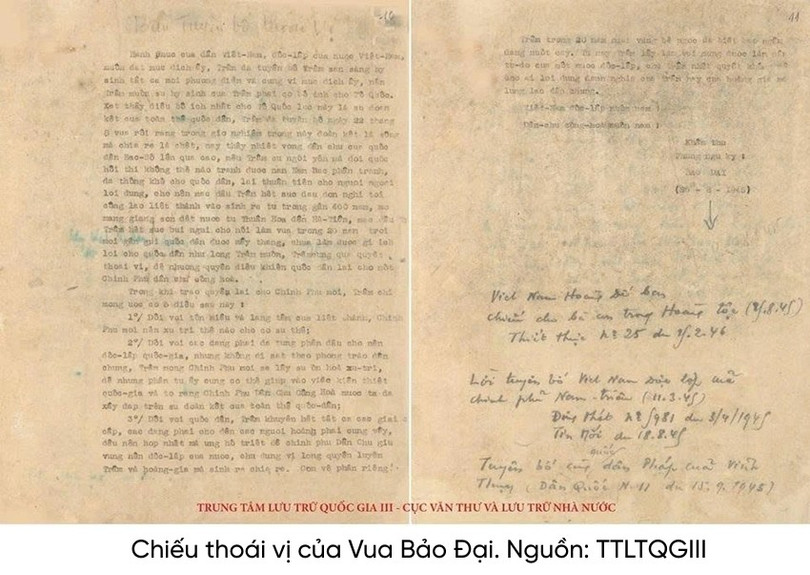 -16
Toàn Tuyên bố thoái vị
Hanh phuc cua dân Việt-Nam, độc-lập của nước Việt-Nam,
muôn đat muc đich ấy, Trẫm đa tuyên bố Trẫm san sàng hy
sinh tất ca moi phuong diên va cung vi muc đich ấy, nên
Trẫm muôn su hy sinh cua Trẫm phai co bổ ich cho Tổ Quốc.
Xet thấy điều bổ ich nhất cho Tổ Quốc luc này là su đoan
kết cua toàn thể quốc dân, Trẫm đa tuyên bố ngày 22 thang
8 vua rồi rang trong gio nghiêm trong này đoàn kết là sống
mà chia re là chết, nay thấy nhiệt vong dân chu cua quốc
dân Bac-Bô lên qua cao, nếu Trẫm cu ngôi yên mà doi quốc
hôi thi không thể nào tranh duoc nan Nam Bac phân tranh,
da thông khổ cho quốc dân, lai thuân tiên cho nguoi ngoai
loi dung, cho nên mac dầu Trẫm hết suc đau đon nghi toi
công lao liêt thánh vào sinh ra tu trong gần 400 nam, mo
mang giang son đất nuoc tu Thuân Hoa đến Hà-Tiên, mac dầu
Trẫm hết suc bui ngui cho nôi làm vua trong 20 nam troi
moi gần gui quốc dân duoc mấy thang, chua làm duoc gi ich
loi cho quốc dân nhu long Trẫm muốn, Trẫm cung qua quyết
thoai vi, để nhuong quyền điều khiển quốc dân lai cho môt
Chinh Phu dân chu công hoà.
Trong khi trao quyền lai cho Chinh Phu moi, Trẫm chi
mong uoc co 3 điều sau này :
1º/ Dối voi tôn miếu và lang tẩm cua liêt thánh, Chinh
Phu moi nên xu tri thế nào cho co su thể;
2º/ Dối voi cac đang phai đa tung phấn đấu cho nền
độc-lâp quốc-gia, nhung không đi sat theo phong trào dân
chung, Trẫm mong Chinh Phu moi se lấy su ôn hoà xu-tri,
để nhung phần tu ấy cung co thể giup vào viêc kiến thiết
quốc-gia và to rang Chinh Phu Dân Chu Công Hoà nuoc ta đa
xây đap trên su đoàn kết cua toàn thể quốc-dân;
3º/ Dối voi quốc dân, Trẫm khuyên hết tất ca cac giai
cấp, cac đang phai cho đến cac nguoi hoành phai cung vây,
đều nên hop nhất mà ung hô triêt để chinh phu Dân Chu giu
vung nền độc-lập cua nuoc, cho dung vi long quyến luyến
Trẫm và hoàng-gia mà sinh ra chia re. Con về phần riêng
44
Trẫm trong 20 năm ngai vàng bê ngoc đa biết bao nhiêu
đang nuốt cay. Tu nay Trẫm lấy làm vui đuoc làm dân
tu-do cua môt nuoc độc-lâp, chu Trẫm nhất quyết không để
cho ai loi dung danh nghia cua Trẫm hay cua hoàng gia mà
lung lac dân chung.
Việt-Nam độc-lập muôn nam !
Dân-chu công-hoà muôn nam !
Khâm thu
Phung ngu ky :
Bao Đai
(30 - 8 - 1945)
Viet Nam Hoàng Đế ban
chiếu cho bà con trong Hoàng tộc (25.8.45)
Thiết thực Nº 25 du 21.2.46
Lời tuyên bố Việt Nam Độc lập của
chính phủ Nam-triều (11.3.45)
Đông Phát Nº 5981 du 3/4/1945
Tin Mới du 18.8.45
quốc
Tuyên bố cùng dân Pháp của Vĩnh
Thụy (Dân Quốc Nº 11 du 15.9.1945)
TRUNG TÂM LƯU TRỮ QUỐC GIA III - CỤC VĂN THƯ VÀ LƯU TRỮ NHÀ NƯỚC
Chiếu thoái vị của Vua Bảo Đại. Nguồn: TTLTQGIII